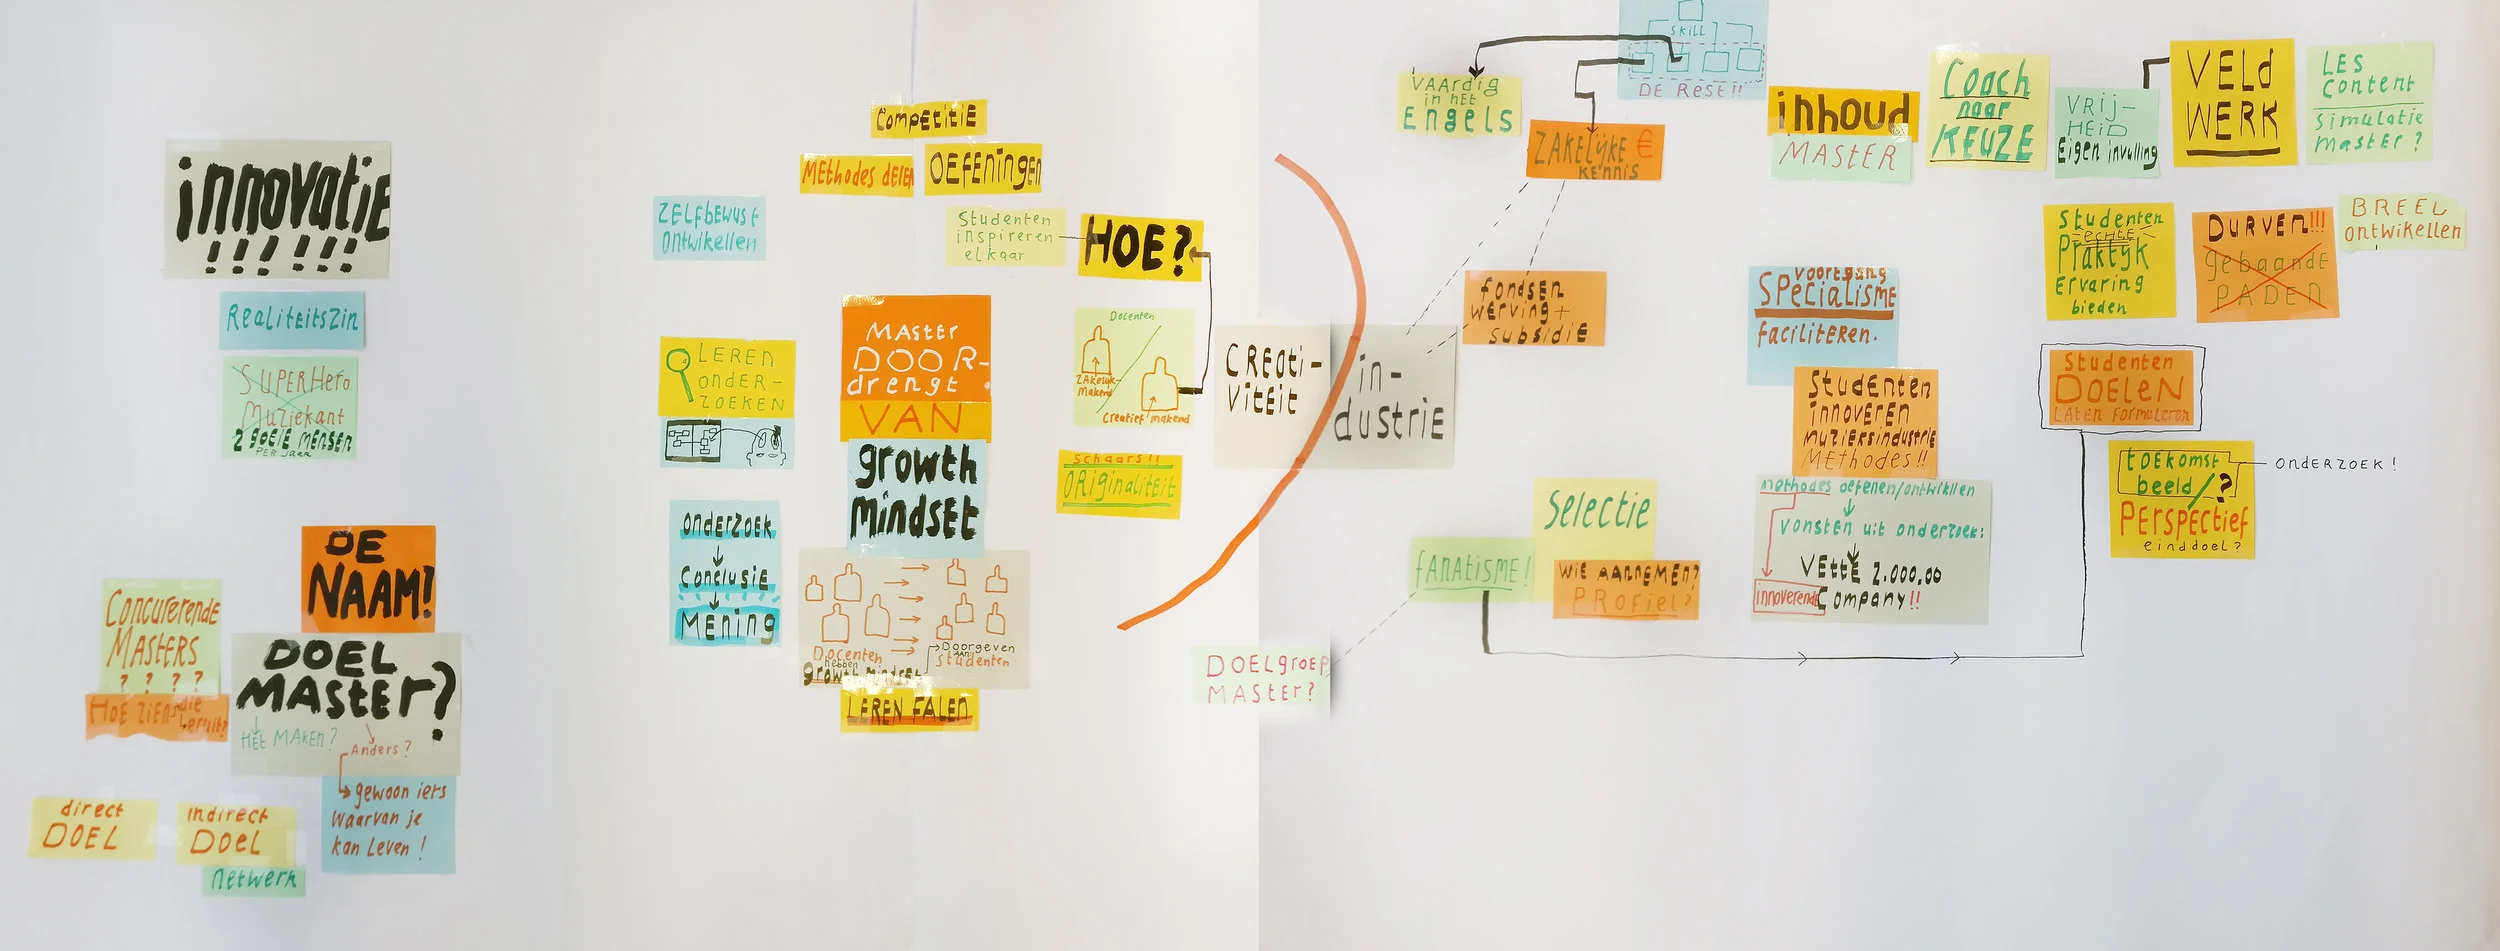 innovatie
!!! !!!
REALITEITSZIN
SUPERHERO
MUZIEKANT
2 GOEIE MENSEN
PER JAAR
DE
NAAM!
CONCURERENDE
MASTERS
? ? ? ?
HOE ZIEN die
eruit?
DOEL
MASTER?
HET MAKEN?
Anders?
gewoon iets
Waarvan je
kan Leven!
direct
DOEL
indirect
DOEL
netwerk
Competitie
METHODES DELEN
OEFENINGEN
ZELFBEWUST
ONTWIKELLEN
Studenten
inspireren
elkaar
HOE?
MASTER
DOOR-
drengt
VAN
growth
mindset
LEREN
ONDER-
ZOEKEN
onderzoek
Conclusie
Mening
Docenten
hebben
growth mindset
Doorgeven
AAN:
Studenten
LEREN FALEN
Docenten
ZAkelijk-
Makend
Creatief makend
Schaars!!
ORiginaliteit
CREATI-
VITEIT
in-
dustrie
DOELgroep
MASTER?
SKILL
DE REST!!
VAARDIG
in HET
Engels
ZAKELIJKE €
KENNIS
fondsen
werving +
Subsidie
Selectie
fANATISME!
WIE AANNEMEN?
PROFIEL?
inhoud
MASTER
Coach
naar
KEUZE
VRIJ-
HEID
Eigen invulling
VELD
WERK
LES
Content
Simulatie
master?
Studenten
ECHTE
Praktijk
Ervaring
bieden
DURVEN!!!
gebaande
PADEN
BREEL
ontwikellen
voortgang
SPECIALISME
faciliteren.
STUDENTEN
innoveren
muzieksindustrie
METHODES!!
methodes oefenen/ontwikllen
Vonsten uit onderzoek:
VETTE 2.000,00
innoverende Company!!
Studenten
DOELEN
LATEN FORMULEREN
toekomst
beeld
/ ?
PERSPECTIEF
einddoel?
ONDERZOEK!